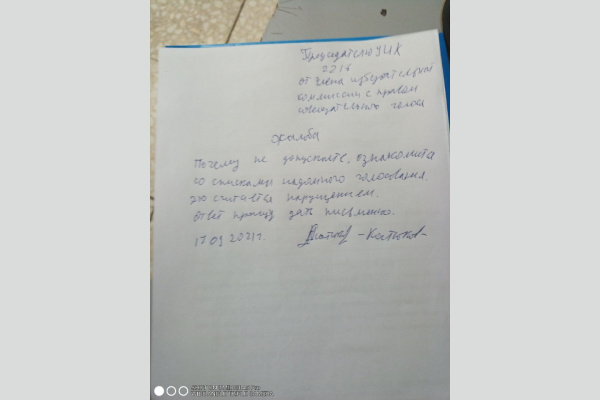 Председателю УИК
2216
от члена избирательной
комиссии с правом
совещательного голоса
жалоба
почему не допускаете, ознакомится
со списками надомного голосования,
это считается нарушением.
ответ прошу дать письменно.
17 09 2021г.